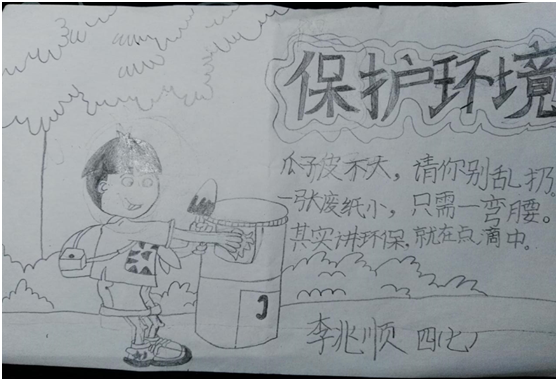 保护环境
瓜子皮不大，请你别乱扔
一张废纸小，只需一弯腰。
其实讲环保，就在点滴中。
李兆顺 四(七)